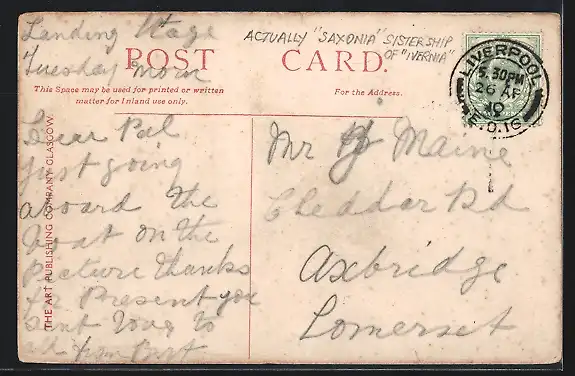 Landing Stage
Tuesday morn
POST CARD.
ACTUALLY "SAXONIA" SISTERSHIP
OF "IVERNIA"
This Space may be used for printed or written
matter for Inland use only.
For the Address.
LIVERPOOL
5.30 PM
26 AP
10
Dear Pal
Just going
aboard the
boat on the
picture thanks
for Present you
sent love to
all from Bert
Mr Maine
Cheddar Rd
Axbridge
Somerset
THE ART PUBLISHING COMPANY, GLASGOW.